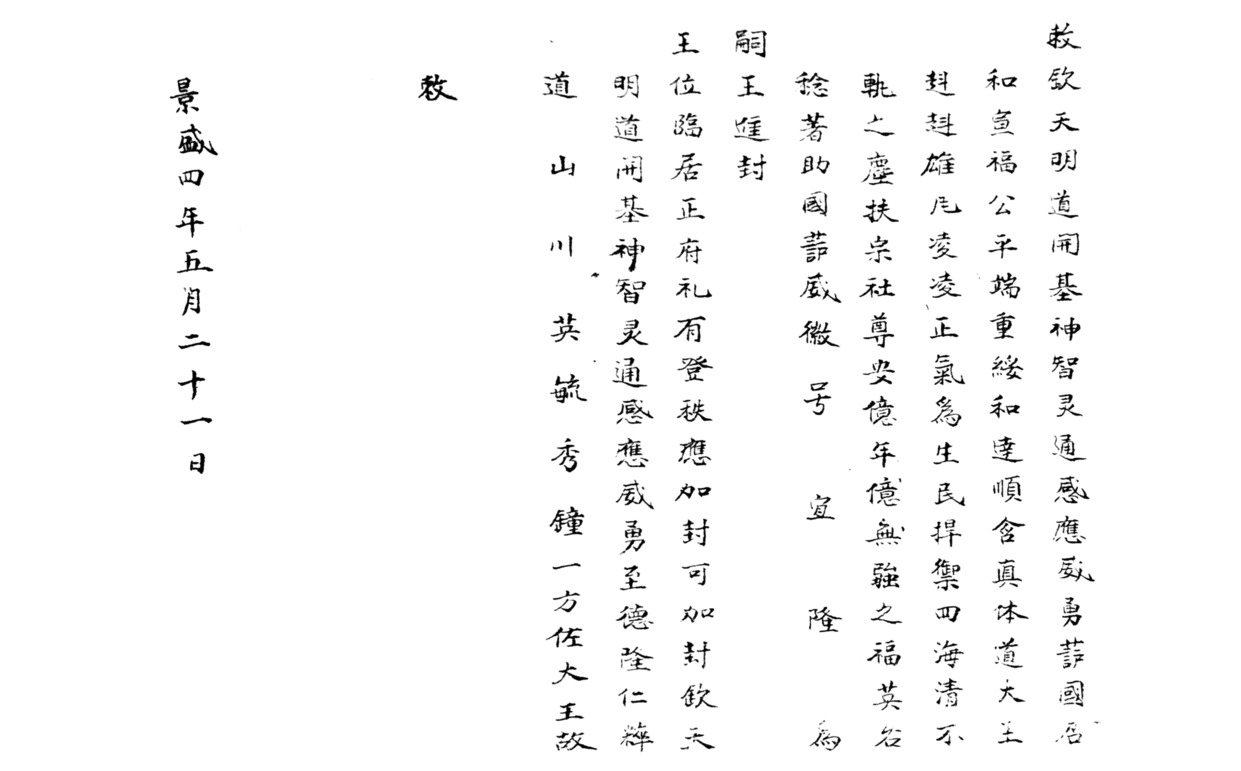 敕欽天明道開基神智灵通感應威勇護國居
和宣福公平端重綏和達順含真体道大王
赳赳雄凡凌凌正氣為生民捍禦四海清不
軌之塵扶宗社尊安億年億無疆之福英名
稔著助國護威徽号宜隆為
嗣王進封
王位臨居正府礼有登秩應加封可加封欽天
明道開基神智灵通感應威勇至德隆仁粹
道山川英毓秀鐘一方佐大王故
敕
景盛四年五月二十一日